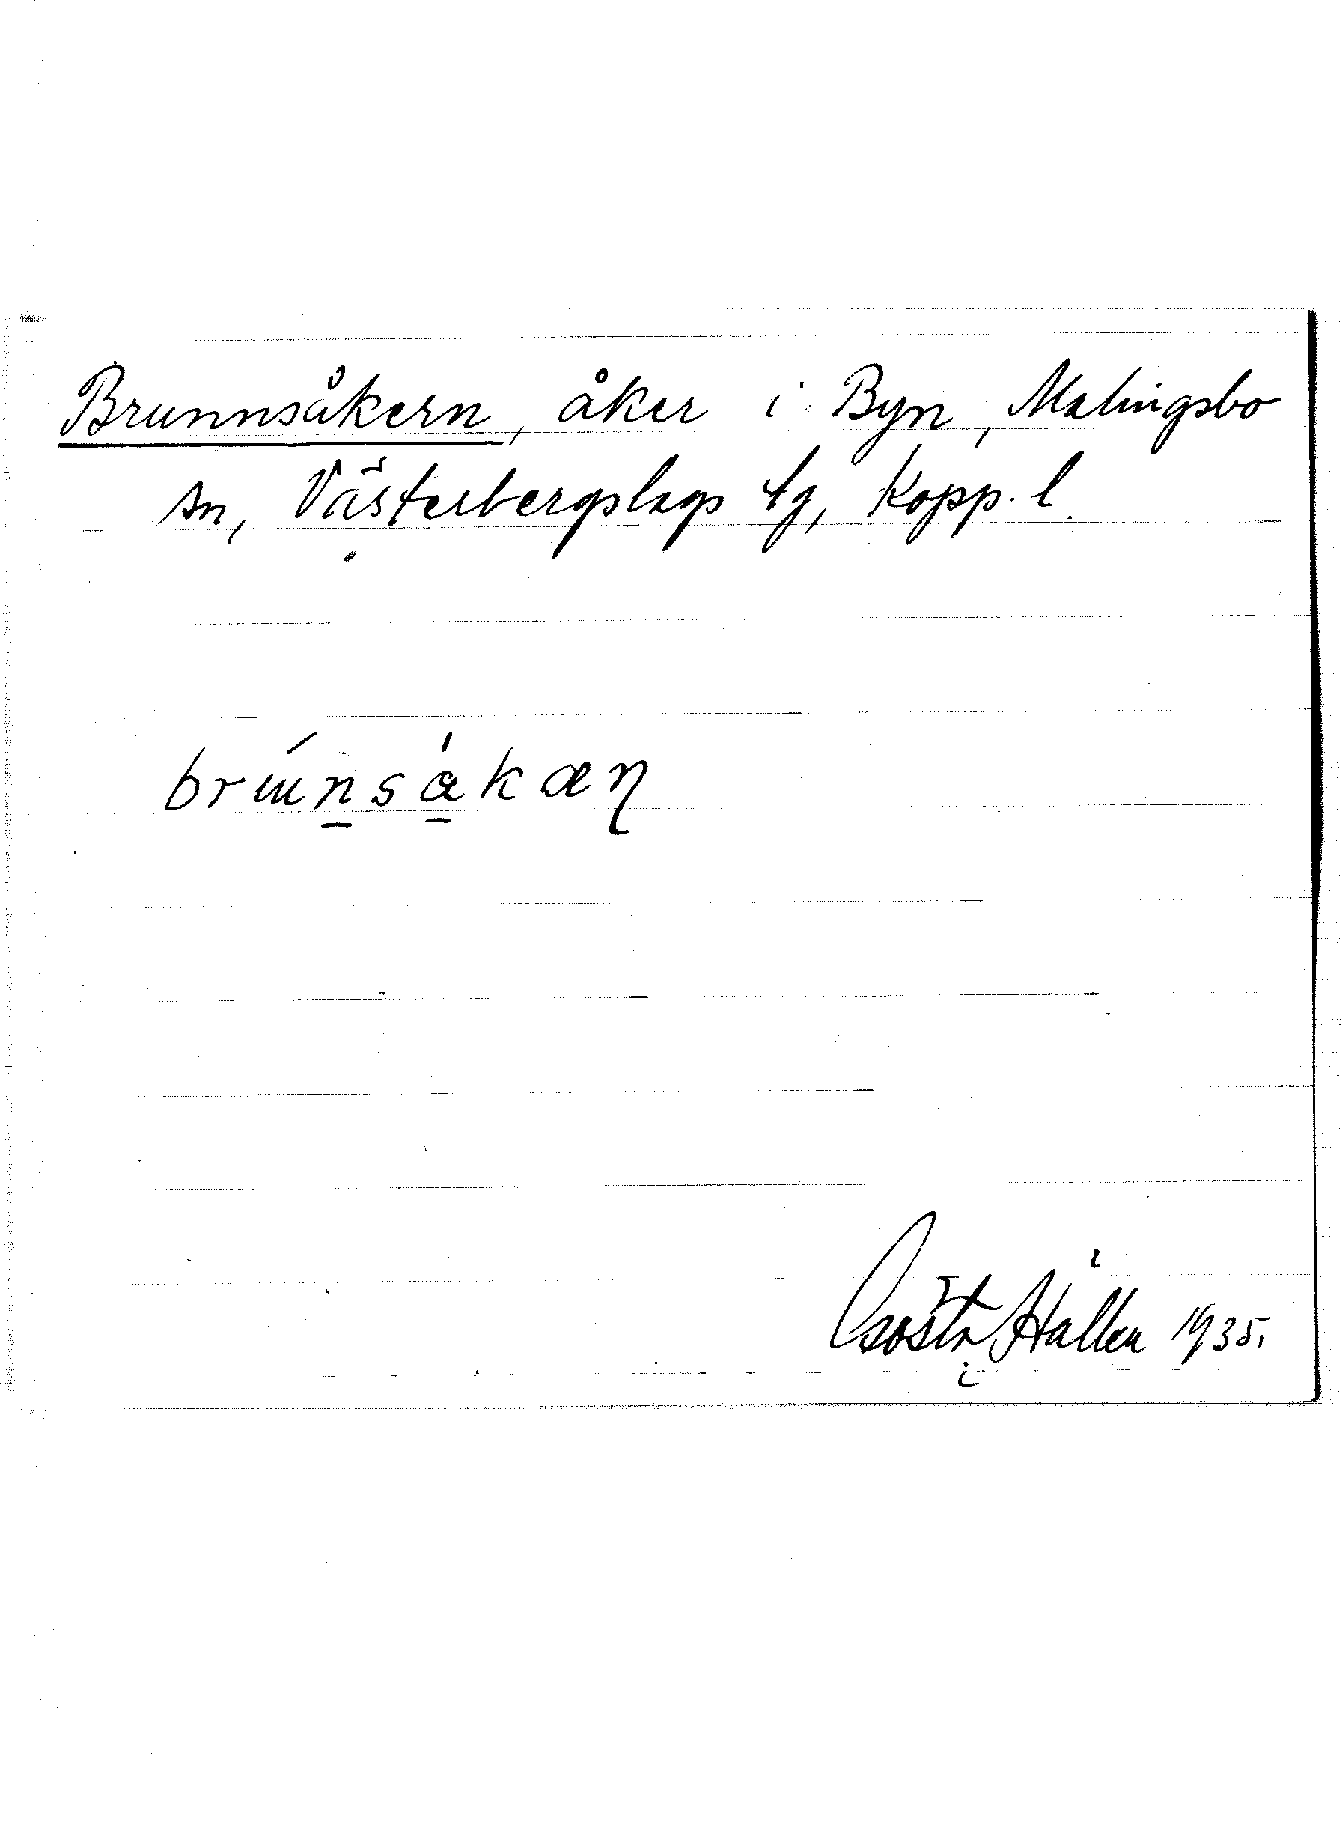 Brunnsåkern, åker i Byn, Malingsbo
sn, Västerbergslags tg, Kopp. l.
brunsåkæn
Gösta Hållen 1935.